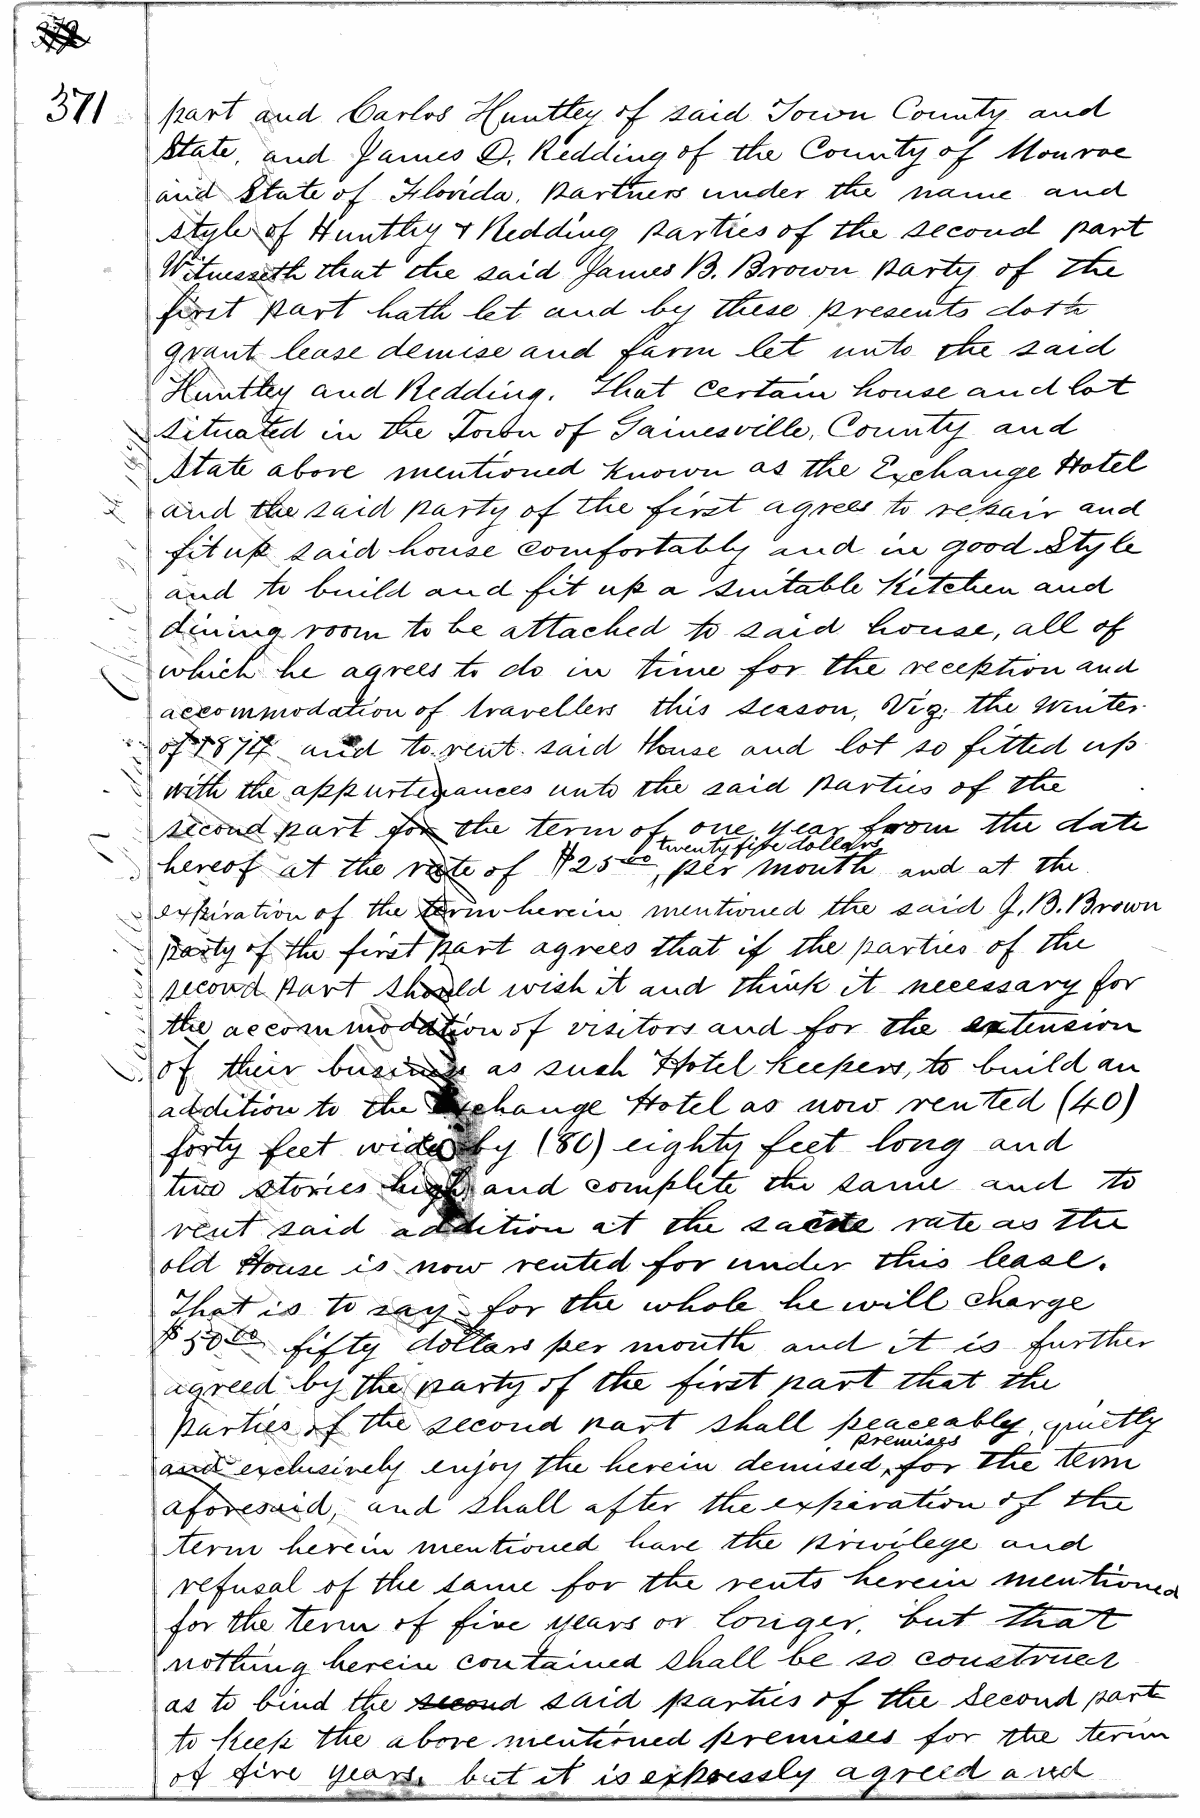 371
part and Carlos Huntley of said Town County and
State, and James O. Redding of the County of Monroe
and State of Florida, partners under the name and
style of Huntley & Redding parties of the second part
Witnesseth that the said James B. Brown party of the
first part hath let and by these presents doth
grant lease demise and farm let unto the said
Huntley and Redding. That certain house and lot
situated in the Town of Gainesville, County and
State above mentioned known as the Exchange Hotel
and the said party of the first agrees to repair and
fit up said house comfortably and in good Style
and to build and fit up a suitable Kitchen and
dining room to be attached to said house, all of
which he agrees to do in time for the reception and
accommodation of travellers this season, Viz: the winter
of 1874 and to rent said House and lot so fitted up
with the appurtenances unto the said parties of the
second part for the term of one year from the date
twenty five dollars
hereof at the rate of $25 00 , per month and at the
expiration of the term herein mentioned the said J. B. Brown
party of the first part agrees that if the parties of the
second part should wish it and think it necessary for
the accommodation of visitors and for the extension
of their business as such Hotel Keepers, to build an
addition to the Exchange Hotel as now rented (40)
forty feet wide by (80) eighty feet long and
two stories high and complete the same and to
rent said addition at the same rate as the
old House is now rented for under this lease.
That is to say for the whole he will charge
$50 00 fifty dollars per month and it is further
agreed by the party of the first part that the
parties of the second part shall peaceably, quietly
premises
and exclusively enjoy the herein demised, for the term
aforesaid, and shall after the expiration of the
term herein mentioned have the privilege and
refusal of the same for the rents herein mentioned
for the term of five years or longer, but that
nothing herein contained shall be so construed
as to bind the second said parties of the second part
to keep the above mentioned premises for the term
of five years, but it is expressly agreed and